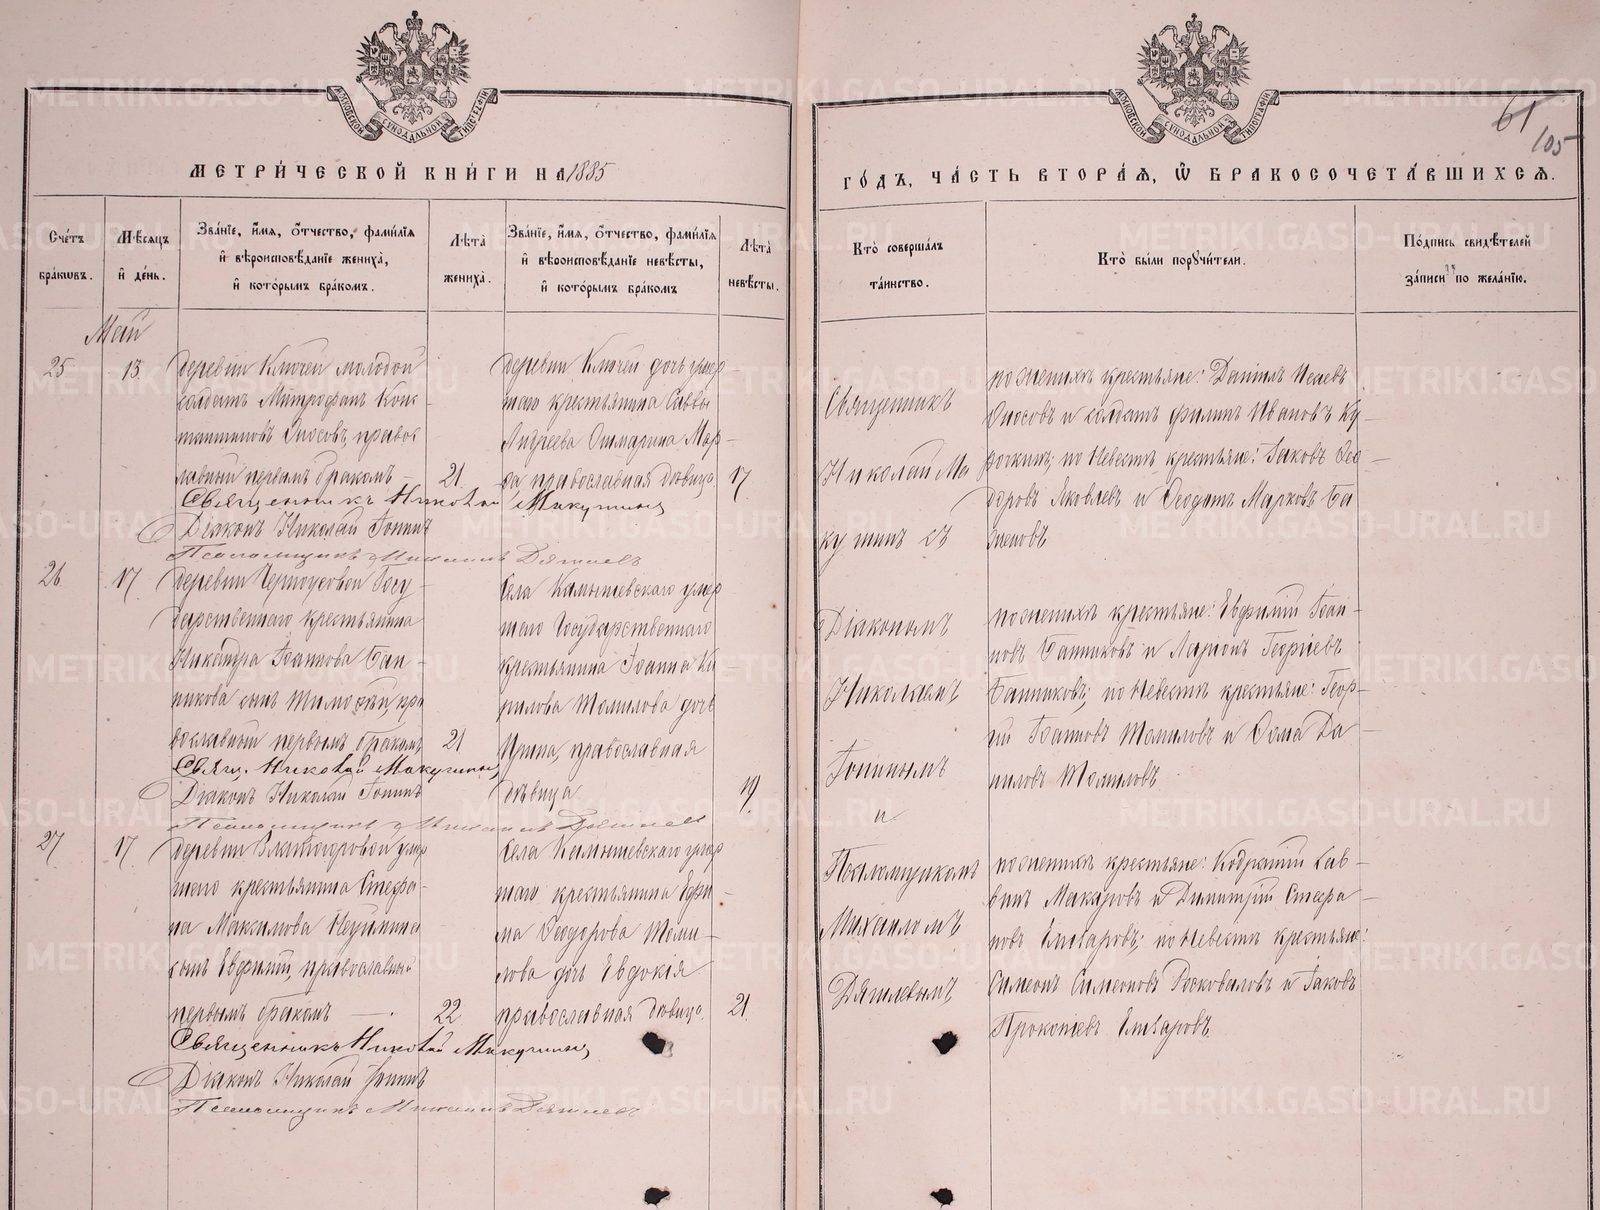 МЕТРИ́ЧЕСКОЙ КНИ́ГИ НА 1885
Сче́тъ бра́ковъ.
Мѣ́сяцъ и҆ де́нь.
Зва́нїе, и҆́мѧ, ѻ҆́тчество, фами́лїѧ и҆ вѣроисповѣ́данїе жениха̀, и҆ кото́рымъ бра́комъ.
Лѣ́та жениха̀.
Зва́нїе, и҆́мѧ, ѻ҆́тчество, фами́лїѧ и҆ вѣроисповѣ́данїе невѣ́сты, и҆ кото́рымъ бра́комъ
Лѣ́та невѣ́сты.
Май
25
13.
деревни Ключей молодой
солдатъ Митрофанъ Конс-
тантиновъ Оносовъ, правос
лавный первымъ бракомъ –
21
деревни Ключей дочь умер-
шаго крестьянина Саввы
Андреева Ошмарина Мар-
ѳа православная дѣвица
17
Священникъ Николай Макушинъ
Діаконъ Николай Топинъ
Псаломщикъ Михаилъ Дягилевъ
26
17
деревни Черноусовой Госу-
дарственнаго крестьянина
Никандра Іоаннова Бан-
никова сынъ Тимоѳей, пра
вославный первымъ бракомъ
21
Села Камышевскаго умер
шаго Государственнаго
крестьянина Іоанна Ки-
рилова Томилова дочь
Ирина, православная
дѣвица
19
Свящ. Николай Макушинъ
Діаконъ Николай Топинъ
Псаломщикъ Михаилъ Дягилевъ
27
17
умер
шаго крестьянина Стефа-
на Максимова Неуймина
сынъ Евфимій, православный
первымъ бракомъ –
22
Села Камышевскаго умер
шаго крестьянина Ефи-
ма Ѳеодорова Томи-
лова дочь Евдокія
православная дѣвица.
21.
Священникъ Николай Макушинъ
Діаконъ Николай Топинъ
Псаломщикъ Михаилъ Дягилевъ
61
105
ГО́ДЪ, ЧА́СТЬ ВТОРА́Ѧ, Ѽ БРАКОСОЧЕТА́ВШИХСѦ.
Кто̀ соверша́лъ та́инство.
Кто̀ бы́ли поручи́тели.
По́дпись свидѣ́телей за́писи по жела́нїю.
Священникъ
Николай Ма
кушинъ съ
Діакономъ
Николаемъ
Топинымъ
и
Псаломщикомъ
Михаиломъ
Дягилевымъ
по женихѣ крестьяне: Даніилъ Исаевъ
Оносовъ и солдатъ Филипъ Ивановъ Ку-
рочкинъ; по Невѣстѣ крестьяне: Іаковъ Ѳео-
доровъ Яковлевъ и Ѳеодотъ Марковъ Ба
женовъ
по женихѣ крестьяне: Евфимій Іоан-
новъ Банниковъ и Ларіонъ Георгіевъ
Банниковъ; по Невѣстѣ крестьяне: Геор-
гій Іоанновъ Томиловъ и Ѳома Да-
ниловъ Томиловъ
по женихѣ крестьяне: Кодратій Сав-
винъ Макаровъ и Димитрій Стефа-
новъ Елизаровъ; по Невѣстѣ крестьяне:
Симеонъ Симеоновъ Росковаловъ и Іаковъ
Прокопьевъ Елизаровъ
METRIKI.GASO-URAL.RU